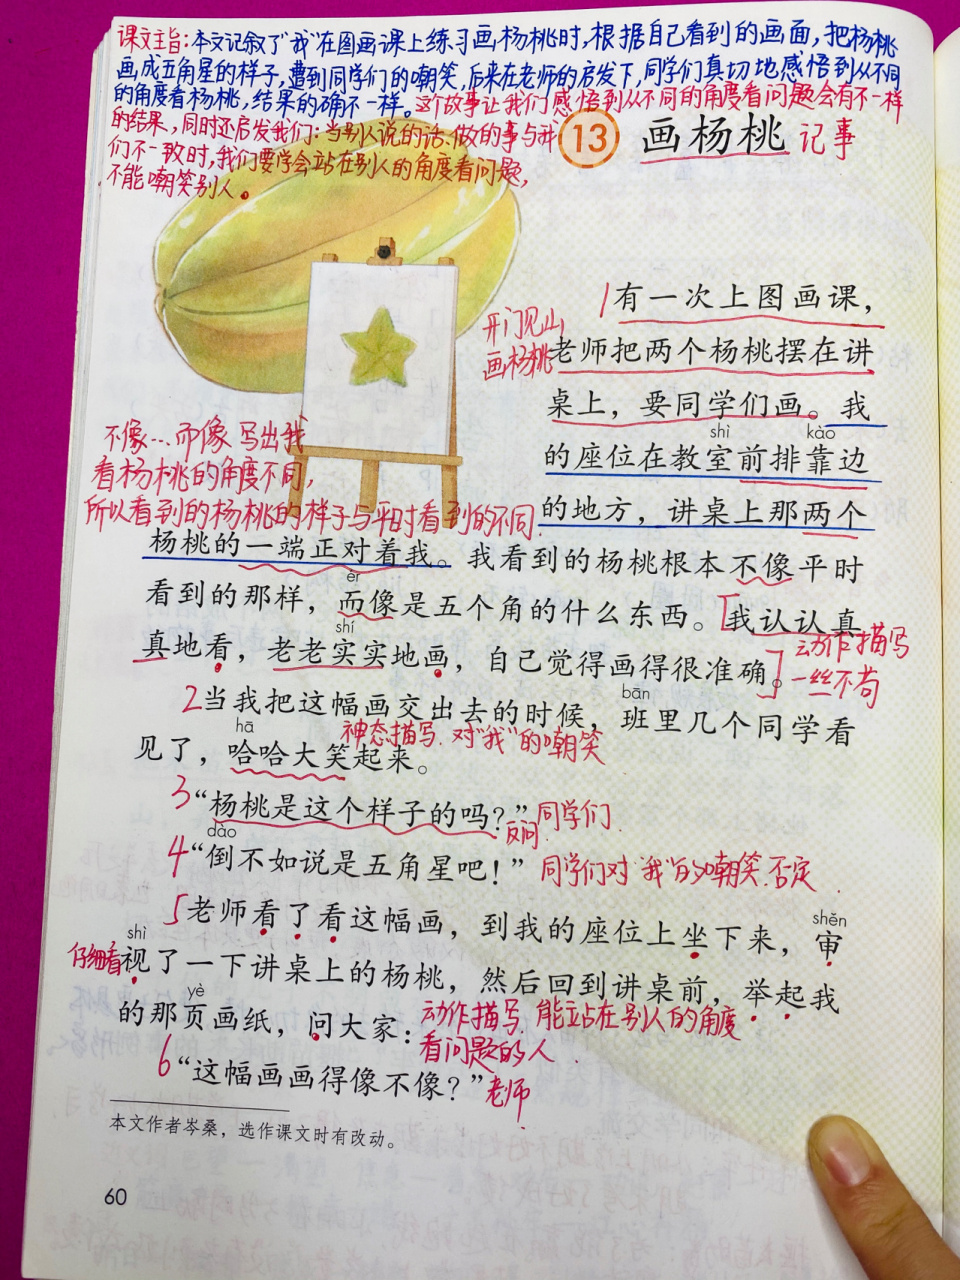 课文主旨:本文记叙了"我"在图画课上练习画杨桃时,根据自己看到的画面,把杨桃
画成五角星的样子,遭到同学们的嘲笑,后来在老师的启发下,同学们真切地感悟到从不同
的角度看杨桃,结果的确不一样。这个故事让我们感悟到从不同的角度看问题会有不一样
的结果,同时还启发我们:当别人说的话、做的事与我
们不一致时,我们要学会站在别人的角度看问题,
不能嘲笑别人。
13 画杨桃 记事
1有一次上图画课,
开门见山
画杨桃
老师把两个杨桃摆在讲
桌上,要同学们画。我
shì kào
的座位在教室前排靠边
的地方,讲桌上那两个
不像…而像 写出我
看杨桃的角度不同,
所以看到的杨桃的样子与平时看到的不同.
杨桃的一端正对着我。我看到的杨桃根本不像平时
ér
看到的那样,而像是五个角的什么东西。我认认真
shí
真地看,老老实实地画,自己觉得画得很准确。
动作描写
一丝不苟
bān
2当我把这幅画交出去的时候,班里几个同学看
hā
神态描写.对"我"的嘲笑
见了,哈哈大笑起来。
3"杨桃是这个样子的吗?"同学们
反问
dào
4"倒不如说是五角星吧!"同学们对"我"的嘲笑.否定.
5老师看了看这幅画,到我的座位上坐下来,审
shěn
shì
仔细看
视了一下讲桌上的杨桃,然后回到讲桌前,举起我
yè
的那页画纸,问大家:
动作描写.能站在别人的角度
看问题的人.
6"这幅画画得像不像?"老师.
本文作者岑桑,选作课文时有改动。
60